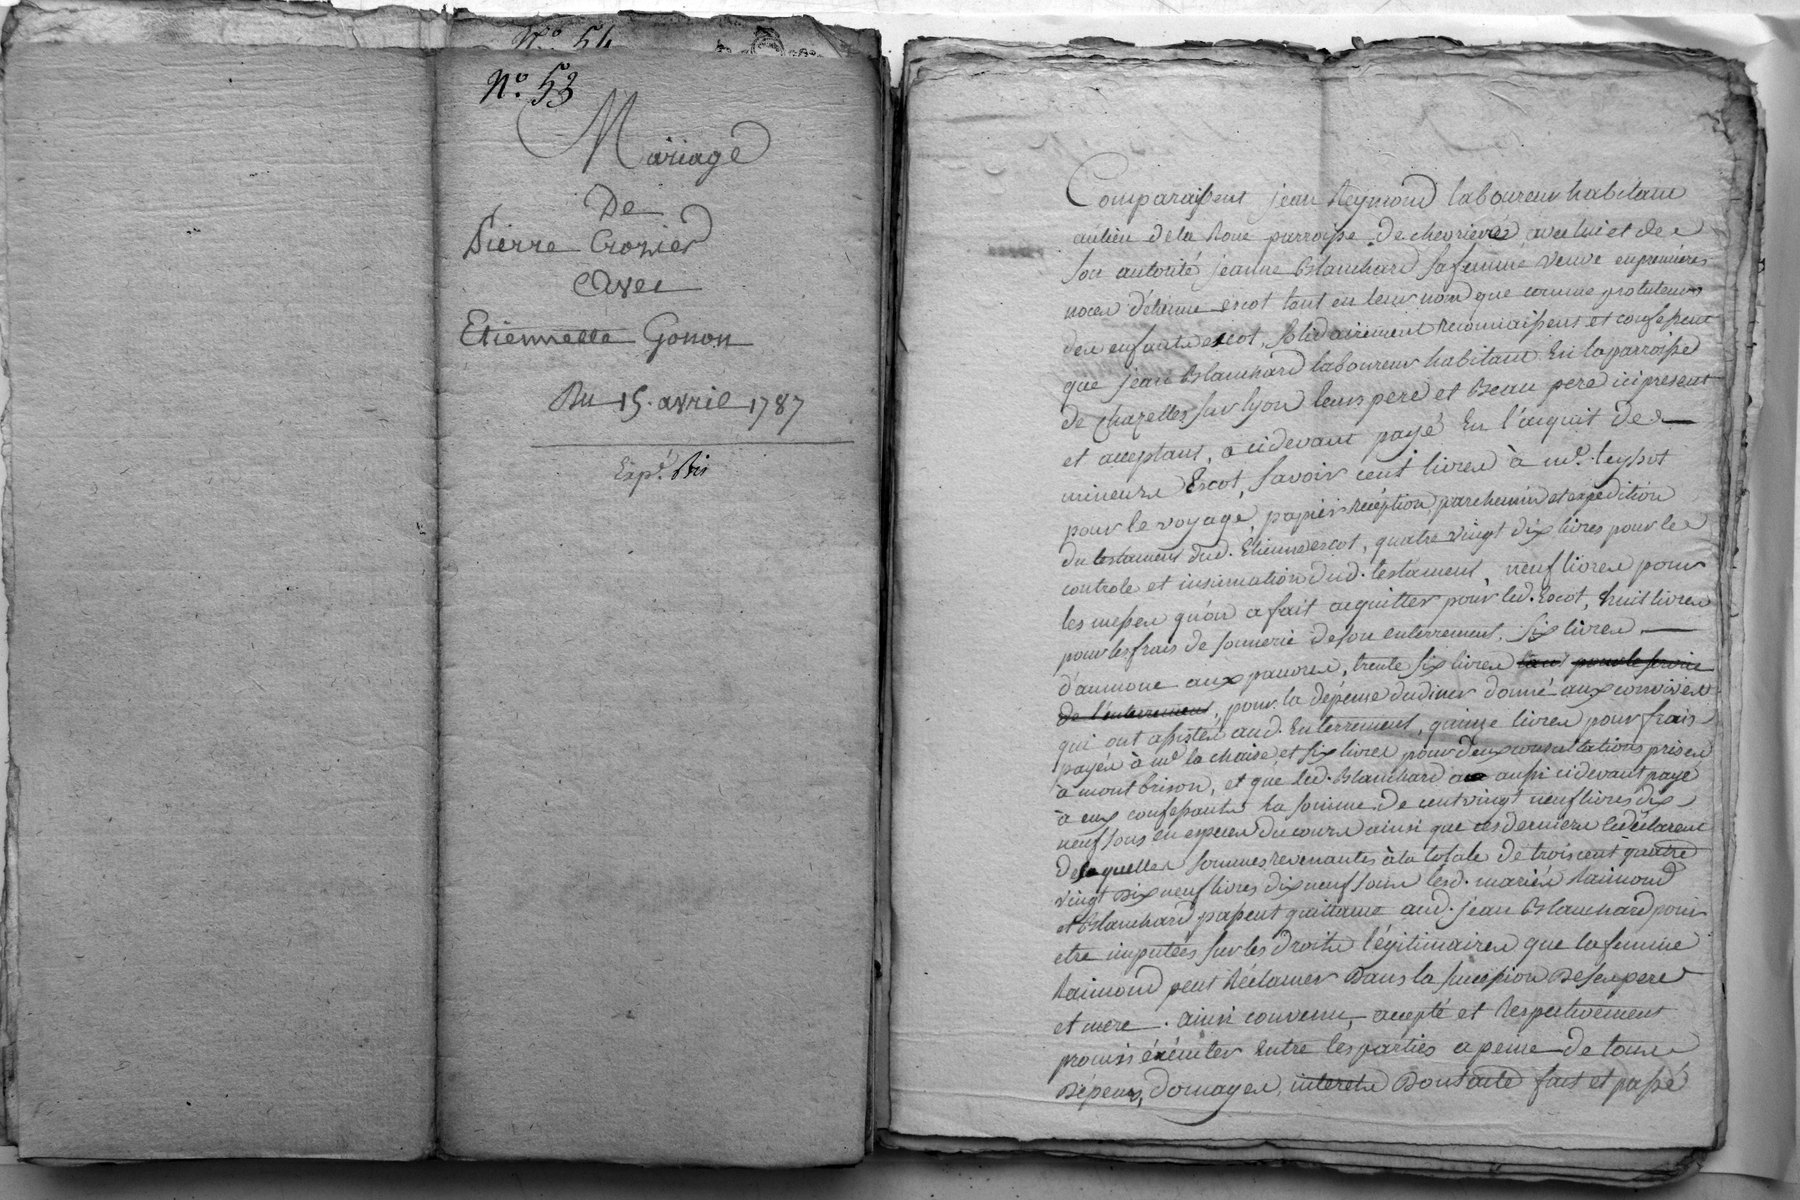 N.° 54
N.° 53
Mariage
De
Pierre Crozier
Avec
Etiennette Gonon
Du 15. avril 1787
Exp.é bis
Comparaissent jean Reymond laboureur habitant
au lieu de la Roue parroisse de chevrieres avec lui et de
son autorité jeanne Blanchard sa femme veuve en premières
noces d'étienne escot tant en leur nom que comme protuteurs
des enfants escot, solidairement reconnaissent et confessent
que jean Blanchard laboureur habitant En la parroisse
de Chazelles sur lyon leurs pere et Beau pere ici present
et acceptant, a cidevant payé En l'acquit des
mineurs Escot, savoir cent livres à m.e leyssot
pour le voyage, papier réception, parchemin et expédition
du testament dud. Etienne escot, quatre vingt dix livres pour le
controle et insinuation dud. testament, neuf livres pour
les messes qu'on a fait acquitter pour led. Escot, huit livres
pour les frais de sonnerie de son enterrement, six livres
d'aumone aux pauvres, trente six livres tant pour le service
de l'enterrement, pour la dépense du diner donné aux convives
qui ont assisté aud. Enterrement, quinze livres pour frais
payés à m.e la chaise, et six livres pour deux consultations prises
à montbrison, et que led. Blanchard a aussi cidevant payé
à eux confessants la somme de cent vingt neuf livres dix
neuf sous en especes du cours ainsi que ces derniers le déclarent
desquelles sommes revenantes à la totale de trois cent quatre
vingt Dix neuf livres dix neuf sous lesd. mariés Raimond
et Blanchard passent quittance aud. jean Blanchard pour
etre imputées sur les droits légitimaires que la femme
Raimond peut Réclamer Dans la succession De ses pere
et mere. ainsi convenu, accepté et Respectivement
promis éxécuter Entre les parties a peine de tous
Dépens, domages, interets Dont acte fait et passé